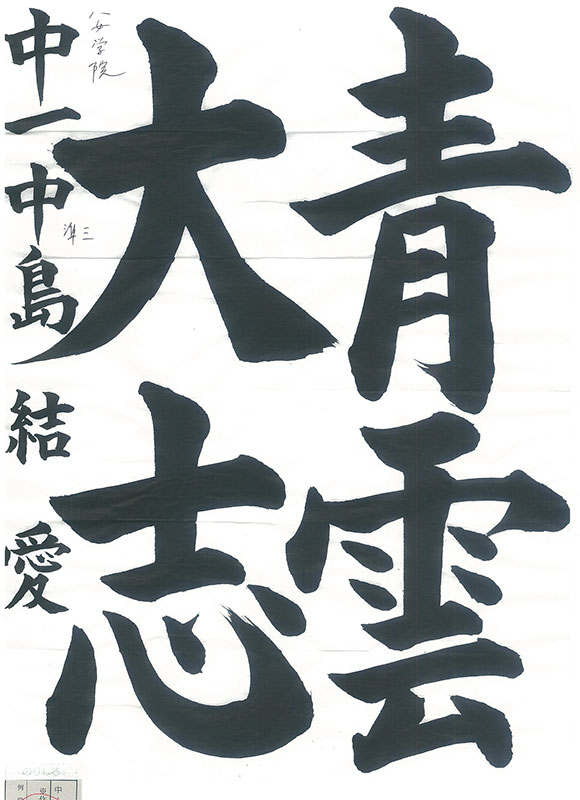 青雲
大志
八女学院
中一中島結愛
準三